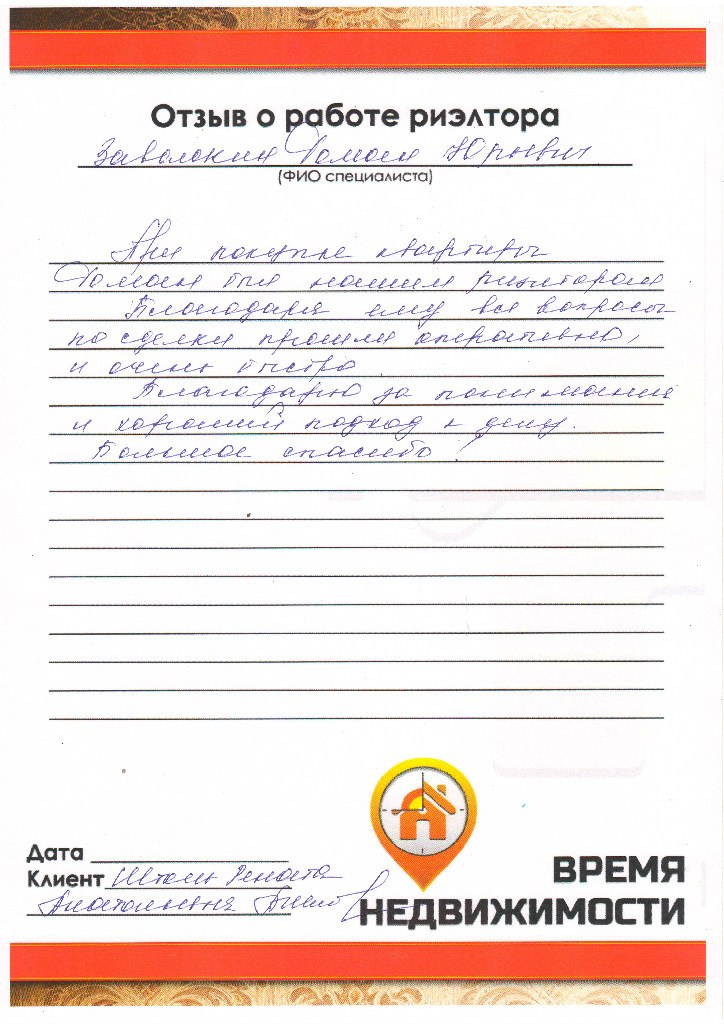 Отзыв о работе риэлтора
Роман Юрьевич
(ФИО специалиста)
При покупке квартиры
Роман был нашим риэлтором
Благодаря ему все вопросы
по сделки прошли оперативно,
и очень быстро
Благодарю за понимание
и хороший подход к делу.
Большое спасибо!
Дата
Клиент Штоль Рената
Анатольевна
ВРЕМЯ
НЕДВИЖИМОСТИ